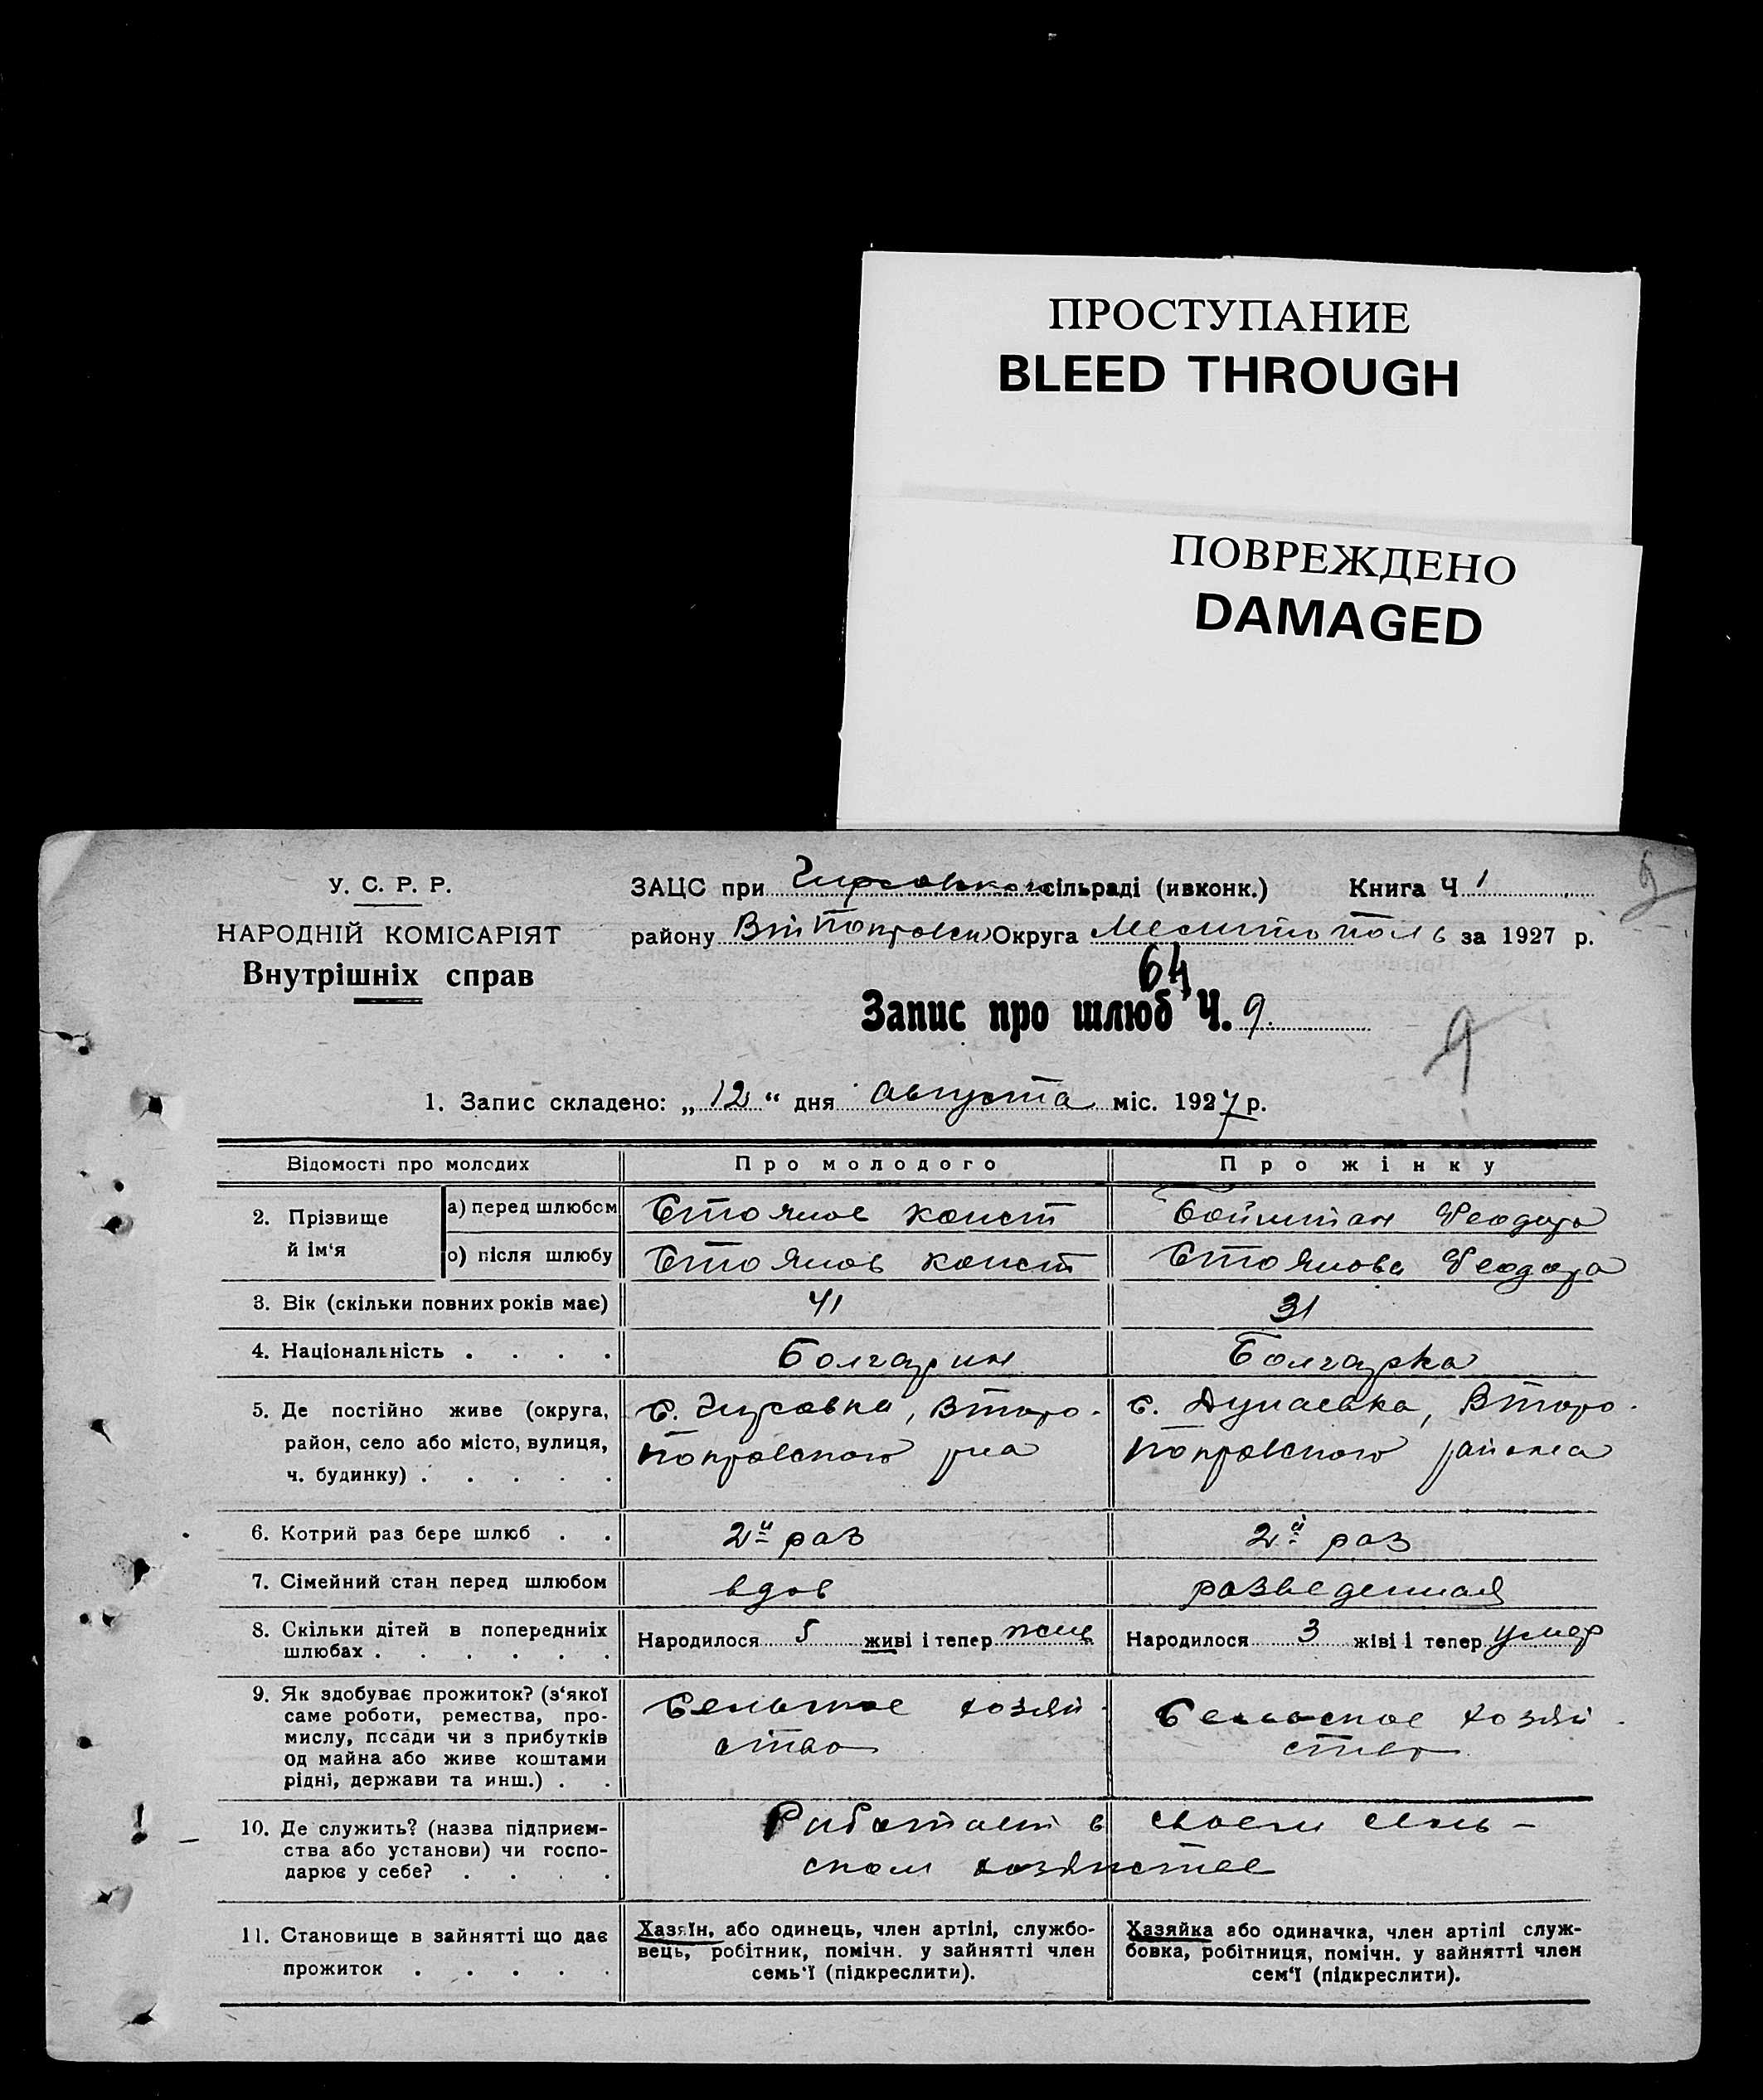 ПРОСТУПАНИЕ
BLEED THROUGH
ПОВРЕЖДЕНО
DAMAGED
У. С. Р. Р.
НАРОДНІЙ КОМІСАРІЯТ
Внутрішніх справ
ЗАЦС при Гирсовком сільраді (ивконк.) Книга Ч 1
району ВтПокровск Округа Мелитополь за 1927 р.
64
Запис про шлюб Ч. 9.
9
1. Запис складено: „ 12 “ дня августа міс. 1927 р.
Відомості про молодих Про молодого Про жінку
2. Прізвище й ім‘я а) перед шлюбом Стоянов Конст Феодора
о) після шлюбу Стоянов Конст Стоянова Феодора
3. Вік (скільки повних років має) 41 31
4. Національність . . . . Болгарин Болгарка
5. Де постійно живе (округа, с. Гирсовка, Второ- с. Дунаевка, Второ-
район, село або місто, вулиця, Покровского рна Покровского района
ч. будинку) . . . . .
6. Котрий раз бере шлюб . . 2й раз 2й раз
7. Сімейний стан перед шлюбом вдов разведенная
8. Скільки дітей в попередниіх Народилося 5 живі і тепер Народилося 3 жіві і тепер умер
шлюбах . . . . . .
9. Як здобуває прожиток? (з‘якої Сельское хозяй- Сельское хозяй-
саме роботи, ремества, про- ство ство
мислу, посади чи з прибутків
од майна або живе коштами
рідні, держави та инш.) . .
10. Де служить? (назва підприєм- Работает в своем сель-
ства або установи) чи госпо- ском хозяистве
дарює у себе? . . . .
11. Становище в зайнятті що дає Хазяїн, або одинець, член артілі, службо- Хазяйка або одиначка, член артілі служ-
прожиток . . . . . вець, робітник, помічн. у зайнятті член бовка, робітниця, помічн. у зайнятті член
семь‘ї (підкреслити). сем‘ї (підкреслити).